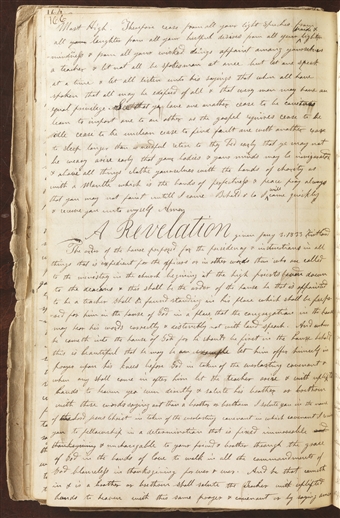 166
Most High. Therefore cease from all your light speeches from
all your laughter from all your lustful desires from all your pride & light
mindedness & from all your wicked doings appoint among yourselves
a teacher & let not all be spokesmen at once but let one speak
at a time & let all listen unto his sayings that when all have
spoken that all may be edified of all & that evry man may have an
equal privilege See that ye love one another cease to be covetous
learn to impart one to an other as the gospel requires cease to be
idle cease to be unclean cease to find fault one with another cease
to sleep longer than is needful retire to thy bed early that ye may not
be weary arise early that your bodies & your minds may be invigorated
& above all things clothe yourselves with the bonds of charity as
with a Mantle which is the bonds of perfectness & peace pray always
that you may not faint until I come Behold & lo I will come quickly
& receive you unto myself Amen
A Revelation given Jany 2. 1833
The order of the house prepared for the presidency & instructions in all
things that is expedient for the officers or in other words them who are called
to the ministry in the church begining at the high priests down
to the deacons & this shall be the order of the house he that is appointed
to be a teacher shall be found standing in his place which shall be prepa
red for him in the house of God in a place that the congregation in the house
may hear his words correctly & distinctly not with loud speech. And when
he cometh into the house of God for he should be first in the house behold
this is beautiful that he may be an example let him offer himself in
prayer upon his knees before God in token of the everlasting covenant &
when any shall come in after him let the teacher arise & with uplifted
hands to heaven yea even directly & salute his brother or brethren
with these words saying art thou a brother or brethren I salute you in the name
of the Lord Jesus Christ in token of the everlasting covenant in which covenant I receive
you to fellowship in a determination that is fixed immoveable and
unchangable to your friend & brother through the grace
of God in the bonds of love to walk in all the commandments of
God blameless in thanksgiving forever & ever. And he that cometh
in & is a brother or brethren shall salute the teacher with uplifted
hands to heaven with this same prayer & covenant or by saying amen